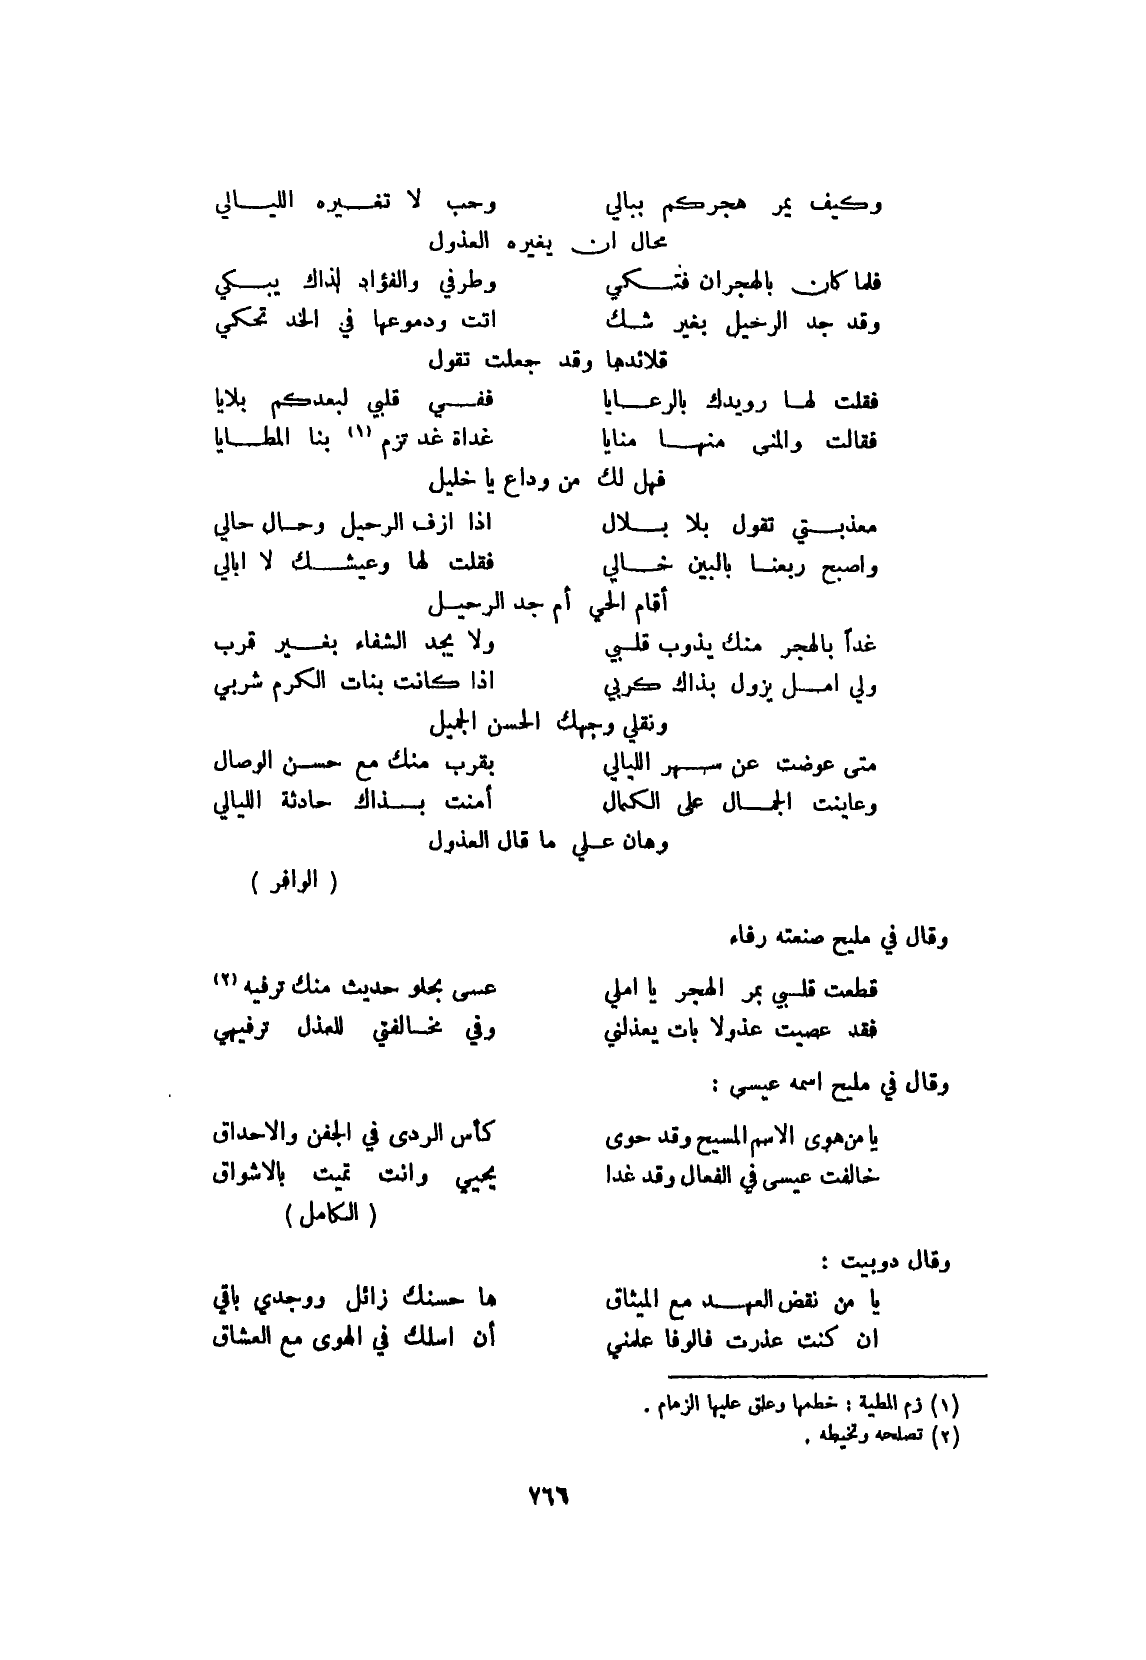 وكيف يمر هجركم ببالي وحب لا تغيره الليالي
محال ان يغيره العذول
فلما كان بالهجران فتكي وطرفي والفؤاد لذاك يبكي
وقد جد الرحيل بغير شك اتت ودموعها في الخد تحكي
قلائدها وقد جعلت تقول
فقلت لها رويدك بالرعايا ففي قلبي لبعدكم بلايا
فقالت والمنى منها منايا غداة غد تزم (١) بنا المطايا
فهل لك من وداع يا خليل
معذبتي تقول بلا بلال اذا ازف الرحيل وحال حالي
واصبح ربعنا بالبين خالي فقلت لها وعيشك لا ابالي
أقام الحي أم جد الرحيل
غداً بالهجر منك يذوب قلبي ولا يجد الشفاء بغير قرب
ولي امل يزول بذاك كربي اذا كانت بنات الكرم شربي
ونقلي وجهك الحسن الجميل
متى عوضت عن سهر الليالي بقرب منك مع حسن الوصال
وعاينت الجمال على الكمال أمنت بذاك حادثة الليالي
وهان علي ما قال العذول
( الوافر )
وقال في مليح صنعته رفاء
قطعت قلبي بمر الهجر يا املي عسى بحلو حديث منك ترفيه (٢)
فقد عصيت عذولا بات يعذلني وفي مخالفتي للعذل ترفيهي
وقال في مليح اسمه عيسى :
يا من هوى الاسم المسيح وقد حوى كأس الردى في الجفن والاحداق
خالفت عيسى في الفعال وقد غدا يحيي وانت تميت بالاشواق
( الكامل )
وقال دوبيت :
يا من نقض العهد مع الميثاق ها حسنك زائل ووجدي باقي
ان كنت عذرت فالوفا علمني أن اسلك في الهوى مع العشاق
(١) زم المطية : خطمها وعلق عليها الزمام .
(٢) تصلحه وتخيطه .
٧٦٦